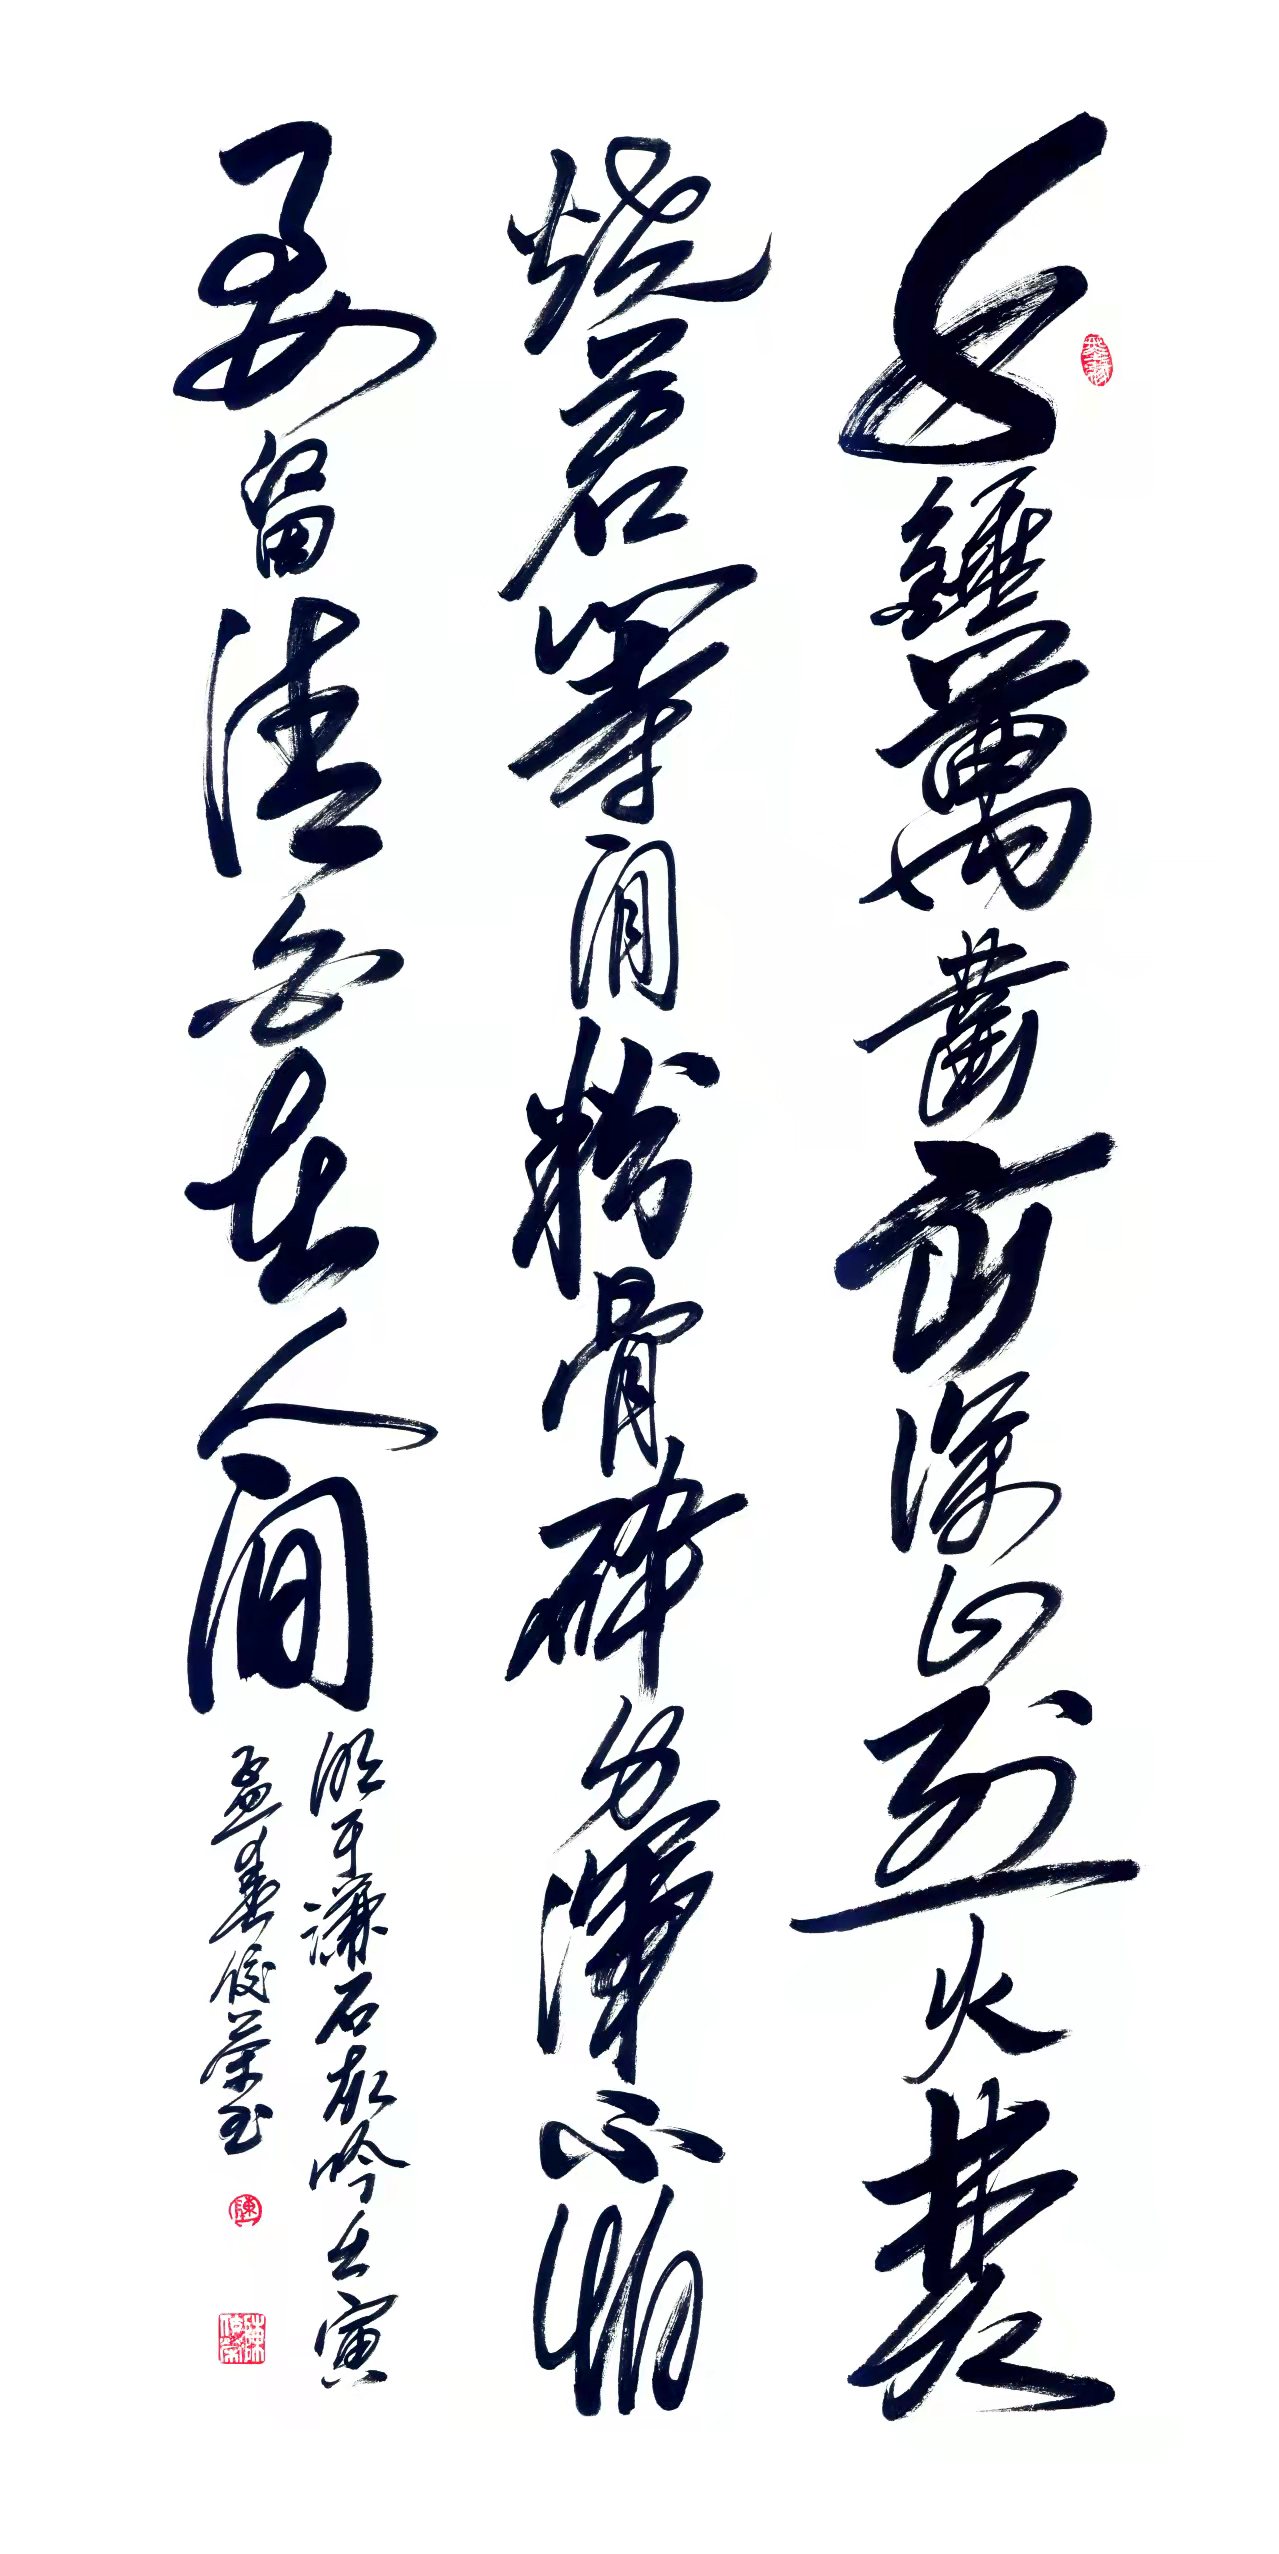 千錘萬鑿出深山烈火焚
燒若等閒粉骨碎身渾不怕
要留清白在人間
明于謙石灰吟壬寅
孟春俊榮書
陳